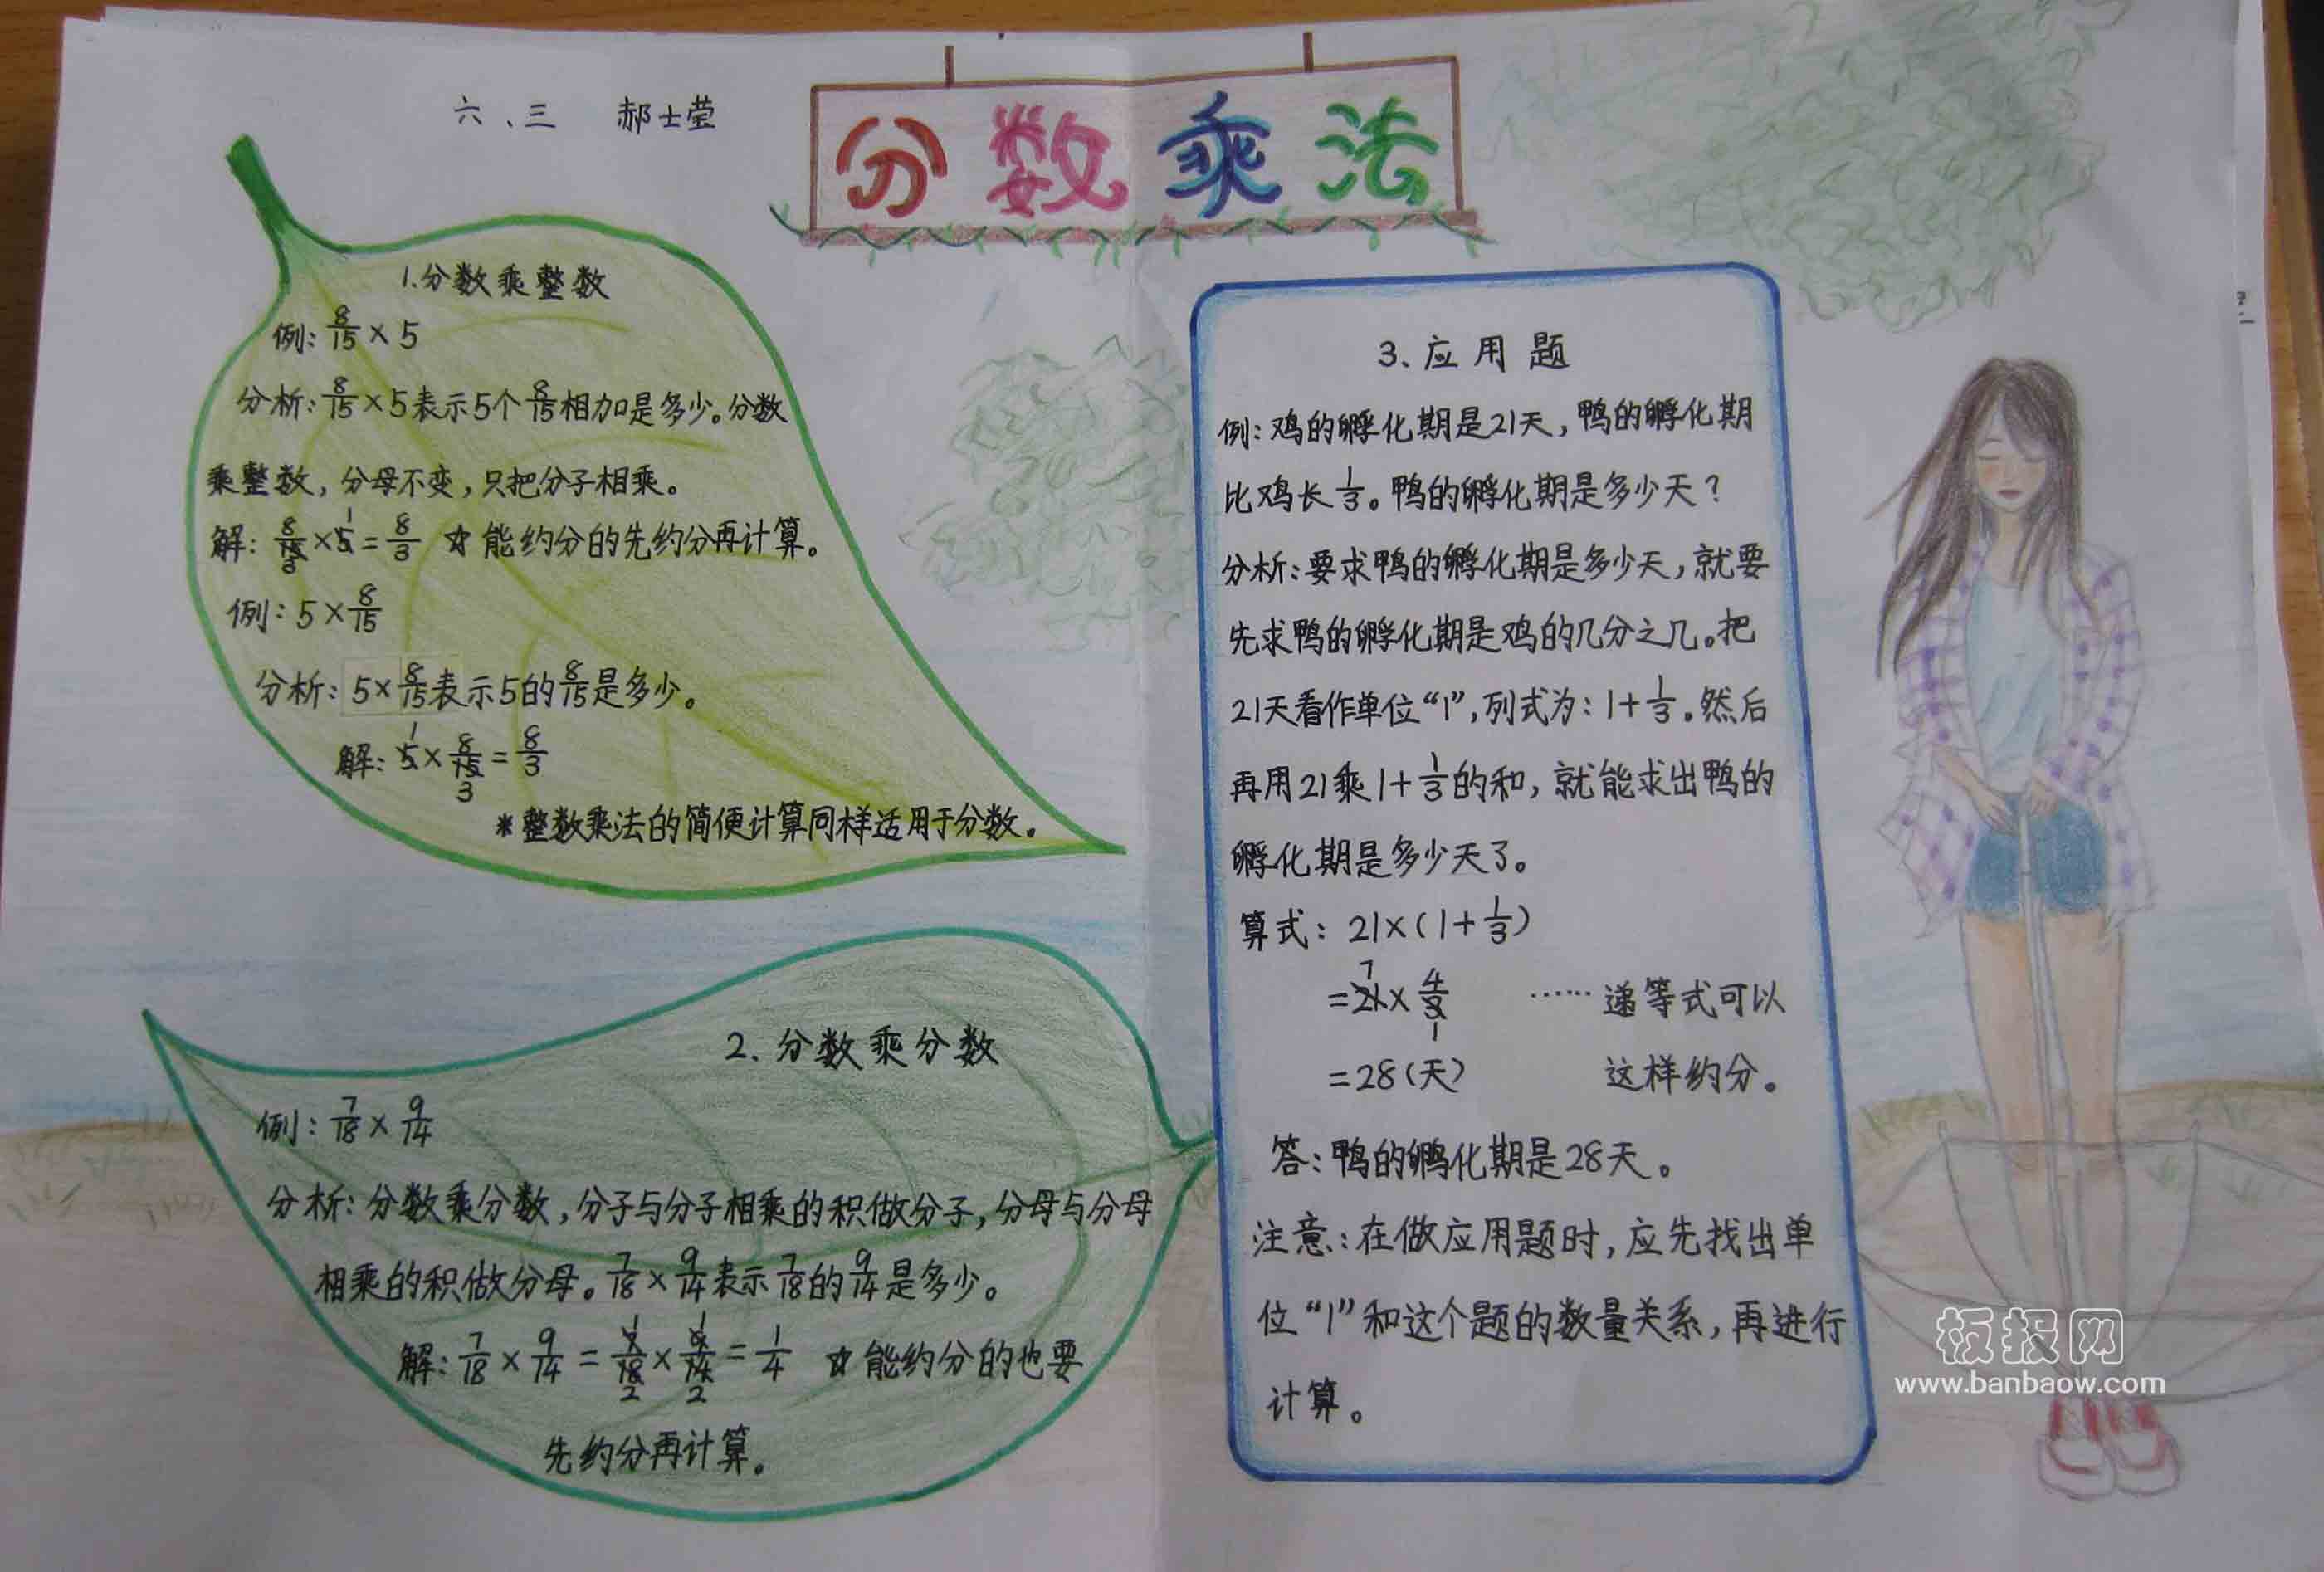 六、三 郝士莹
分数乘法
1.分数乘整数
例：8/15×5
分析：8/15×5表示5个8/15相加是多少。分数
乘整数，分母不变，只把分子相乘。
解：8/15×5=8/3 ☆能约分的先约分再计算。
1
3
例：5×8/15
分析：5×8/15表示5的8/15是多少。
解：5×8/15=8/3
1
3
*整数乘法的简便计算同样适用于分数。
2.分数乘分数
例：7/18×9/14
分析：分数乘分数，分子与分子相乘的积做分子，分母与分母
相乘的积做分母。7/18×9/14表示7/18的9/14是多少。
解：7/18×9/14=7/18×9/14=1/4 ☆能约分的也要
1 1
2 2
先约分再计算。
3、应用题
例：鸡的孵化期是21天，鸭的孵化期
比鸡长1/3。鸭的孵化期是多少天？
分析：要求鸭的孵化期是多少天，就要
先求鸭的孵化期是鸡的几分之几。把
21天看作单位“1”，列式为：1+1/3。然后
再用21乘1+1/3的和，就能求出鸭的
孵化期是多少天了。
算式：21×(1+1/3)
=21×4/3 ……递等式可以
7
1
=28(天) 这样约分。
答：鸭的孵化期是28天。
注意：在做应用题时，应先找出单
位“1”和这个题的数量关系，再进行
计算。
板报网
www.banbaow.com